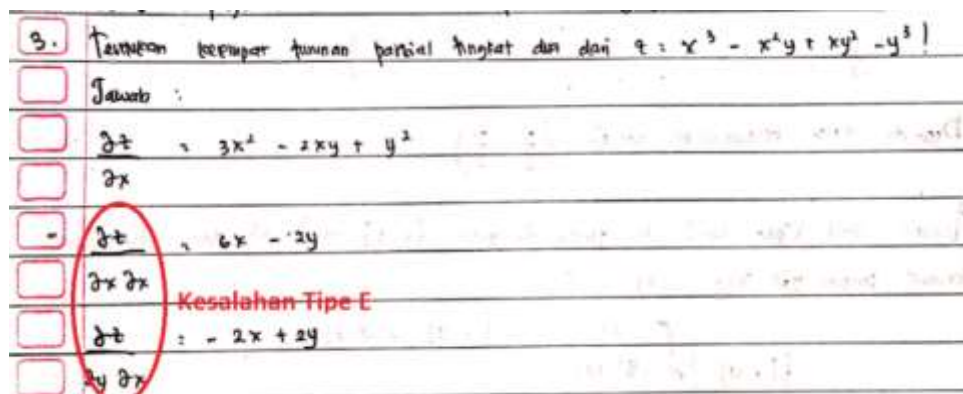 3. Tentukan keempat turunan parsial tingkat dua dari z = x³ - x²y + xy² - y³!
Jawab :
∂z/∂x = 3x² - 2xy + y²
- ∂z/∂x ∂x = 6x - 2y
Kesalahan Tipe E
∂z/∂y ∂x = - 2x + 2y